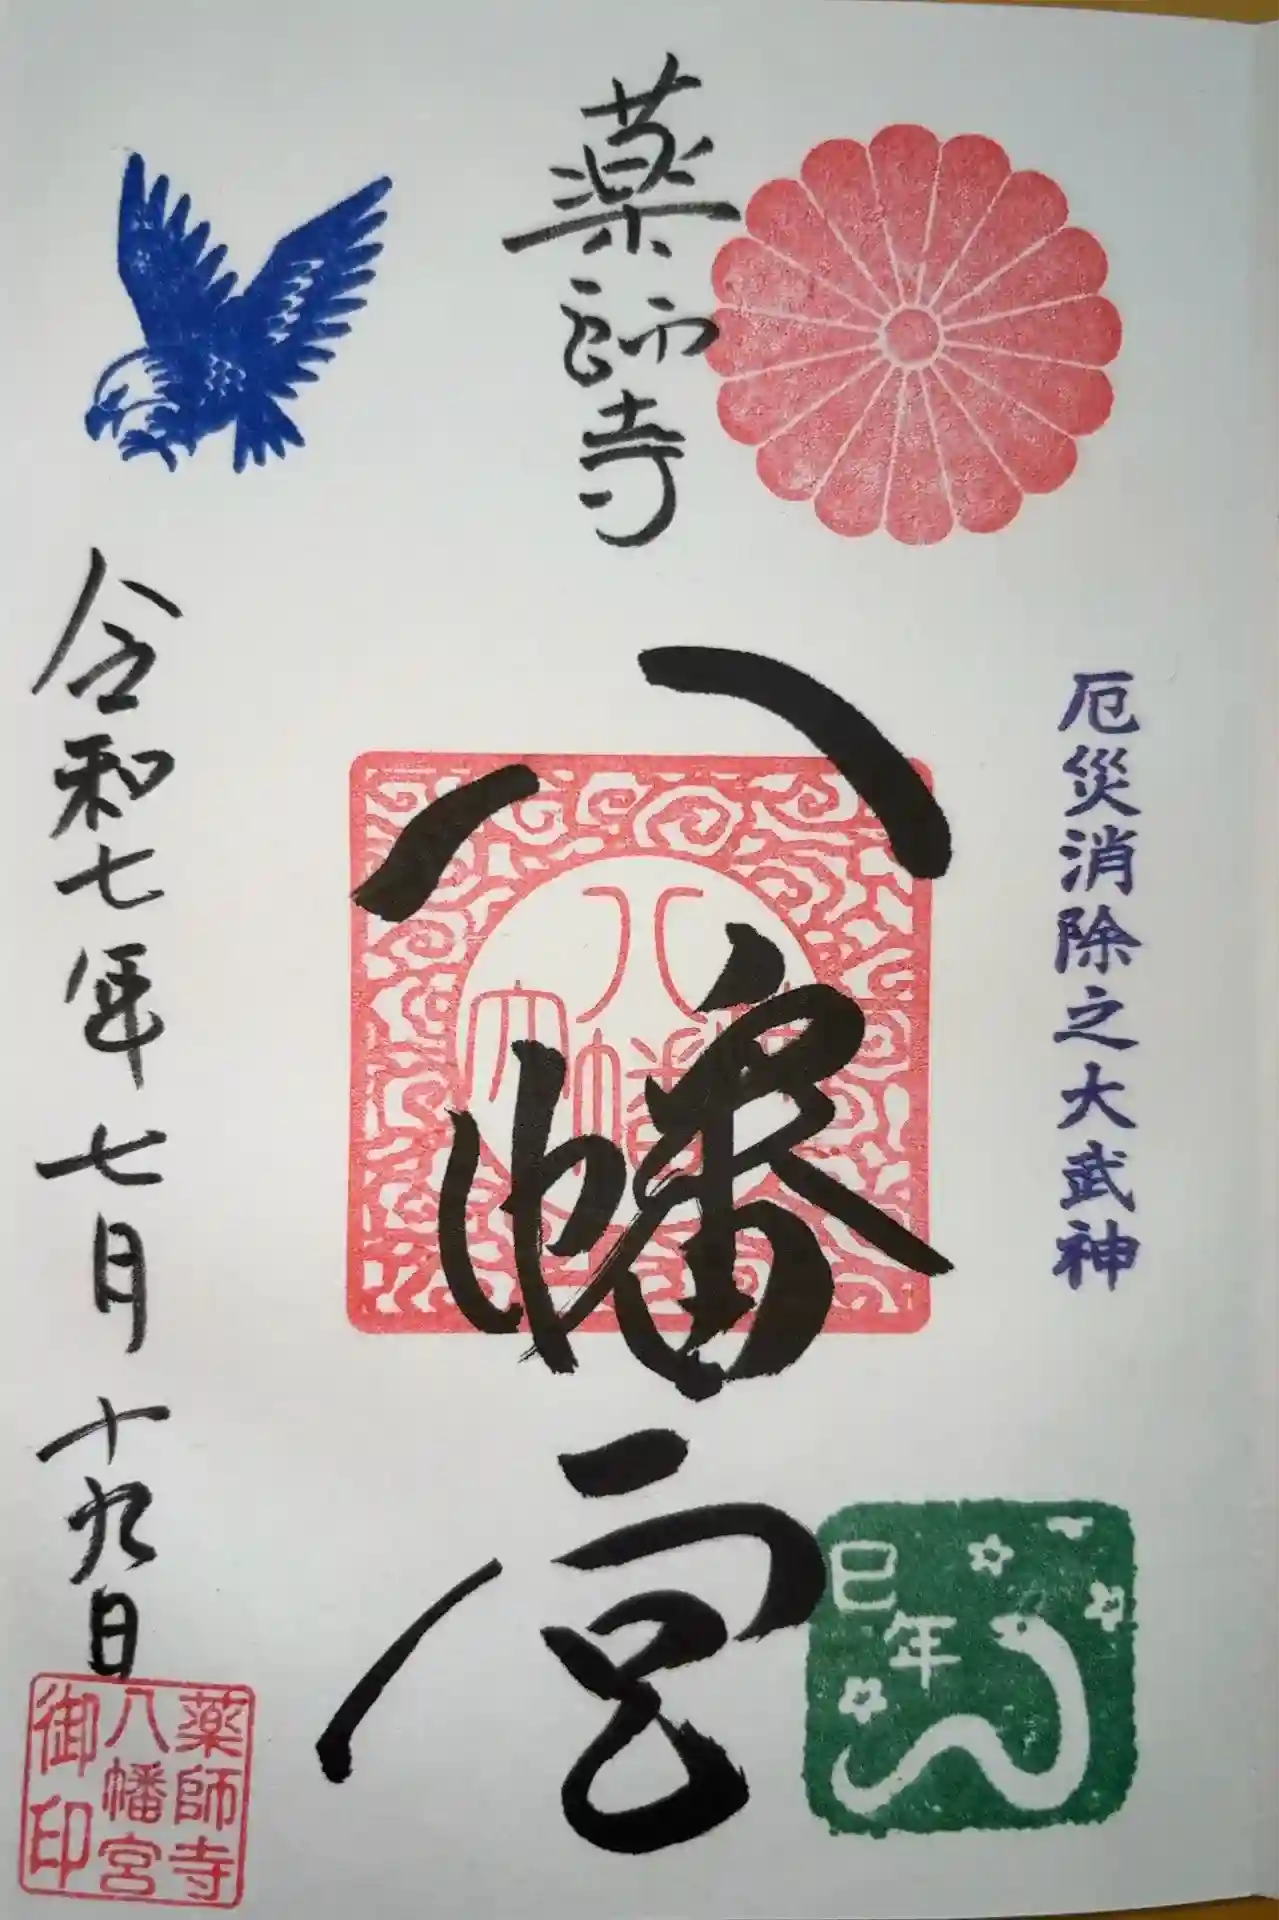 厄災消除之大武神
巳年
薬師寺
八幡宮
令和七年七月十九日
薬師寺
八幡宮
御印